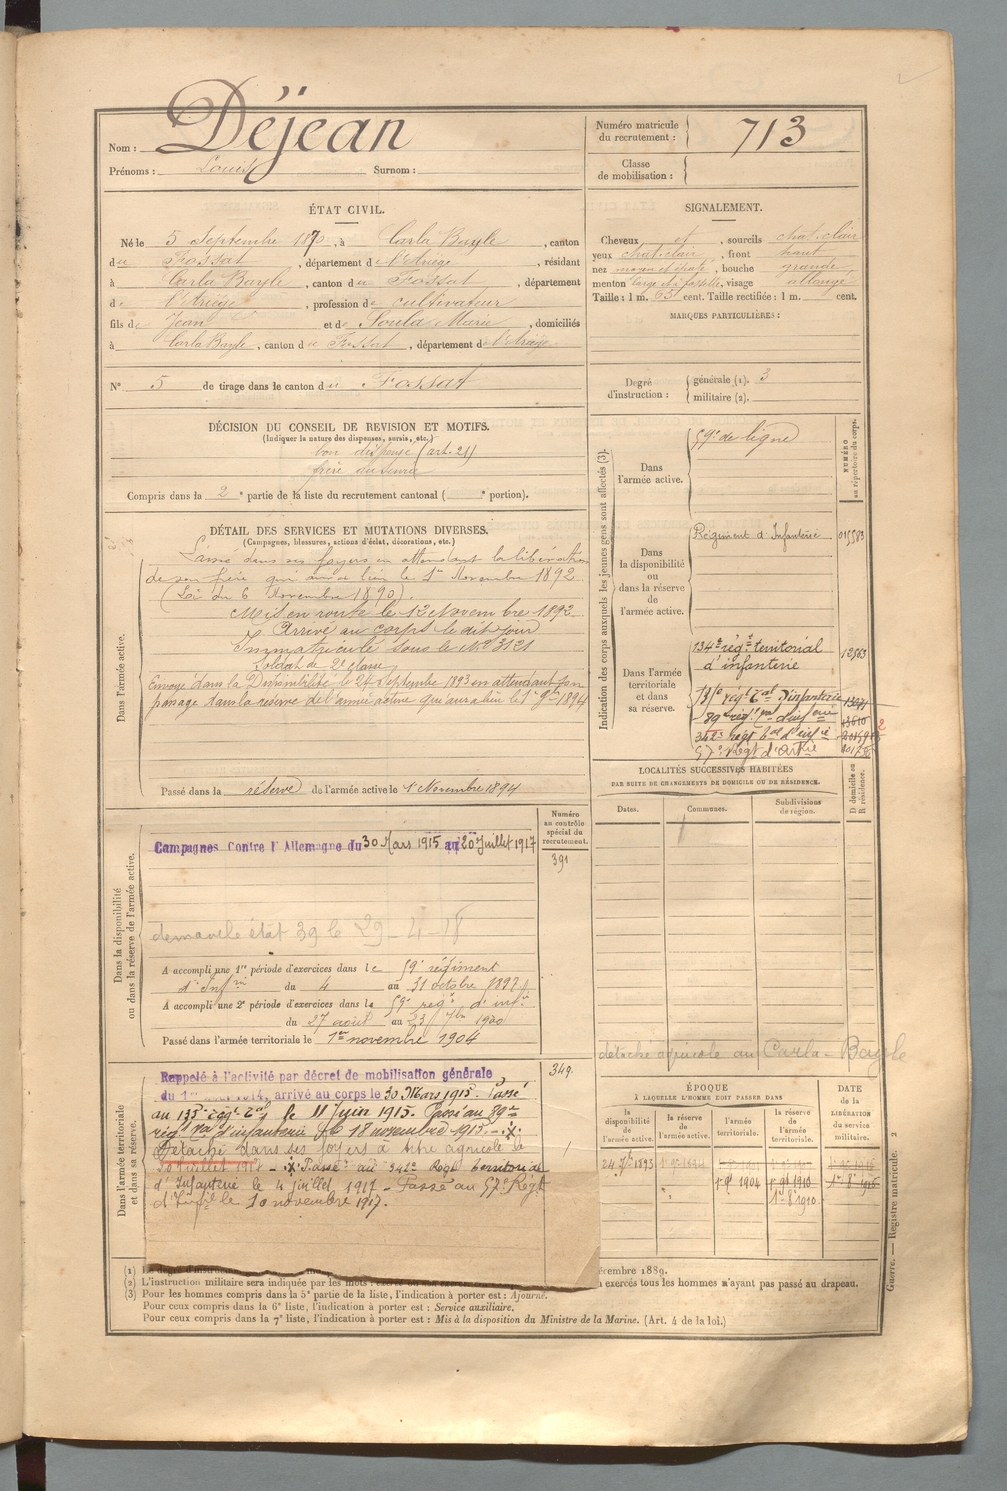 Nom : Déjean
Prénoms : Louis Surnom :
Numéro matricule du recrutement : 713
Classe de mobilisation :
ÉTAT CIVIL.
Né le 5 Septembre 1870, à Carla Bayle, canton
du Fossat, département de l'Ariège, résidant
à Carla Bayle, canton du Fossat, département
de l'Ariège, profession de cultivateur
fils de Jean et de Soula Marie, domiciliés
à Carla Bayle, canton du Fossat, département de l'Ariège
N° 5 de tirage dans le canton du Fossat
SIGNALEMENT.
Cheveux et, sourcils chat. clair
yeux chat. clair, front haut
nez moyen et épaté, bouche grande
menton large et à fossette, visage allongé
Taille : 1 m. 63 cent. Taille rectifiée : 1 m. cent.
MARQUES PARTICULIÈRES :
Degré d'instruction : générale (1). 3
militaire (2).
DÉCISION DU CONSEIL DE REVISION ET MOTIFS.
(Indiquer la nature des dispenses, sursis, etc.)
bon dispensé (art. 21)
frère au service
Compris dans la 2e partie de la liste du recrutement cantonal ( e portion).
DÉTAIL DES SERVICES ET MUTATIONS DIVERSES.
(Campagnes, blessures, actions d'éclat, décorations, etc.)
Dans l'armée active.
Laissé dans ses foyers en attendant la libération
de son frère qui aura lieu le 1er Novembre 1892
(Loi du 6 Novembre 1890).
Mis en route le 12 Novembre 1892
Arrivé au corps le dit jour
Immatriculé sous le No 3121
Soldat de 2e classe
Envoyé dans la Disponibilité le 24 Septembre 1893 en attendant son
passage dans la réserve de l'armée active qui aura lieu le 1er 9bre 1894
Passé dans la réserve de l'armée active le 1er Novembre 1894
Indication des corps auxquels les jeunes gens sont affectés (3).
NUMÉRO au répertoire du corps.
Dans l'armée active.
59e de ligne
Dans la disponibilité ou dans la réserve de l'armée active.
Régiment d'Infanterie 015583
Dans l'armée territoriale et dans sa réserve.
134e régt territorial 12563
d'infanterie
135e régt tal d'infanterie
89e régt tal d'inferie
342e Régt tal d'infie
57e Régt d'Artie
LOCALITÉS SUCCESSIVES HABITÉES
PAR SUITE DE CHANGEMENTS DE DOMICILE OU DE RÉSIDENCE.
Dates. Communes. Subdivisions de région. D domicile ou R résidence.
détaché agricole au Carla-Bayle
Dans la disponibilité ou dans la réserve de l'armée active.
Numéro au contrôle spécial du recrutement.
391
Campagnes Contre l'Allemagne du 30 Mars 1915 au 20 Juillet 1917
demande état 39 le 29-4-18
A accompli une 1re période d'exercices dans le 59e régiment
d'Infrie du 4 au 31 octobre 1897
A accompli une 2e période d'exercices dans le 59e régt d'infie
du 27 août au 23 7bre 1900
Passé dans l'armée territoriale le 1er novembre 1904
Dans l'armée territoriale et dans sa réserve.
349
Rappelé à l'activité par décret de mobilisation générale
du 1er 1914, arrivé au corps le 30 Mars 1915. Passé
au 135e régt tal le 11 Juin 1915. Passé au 89e
régt tal d'infanterie le 18 novembre 1915.
Détaché dans ses foyers à titre agricole le
20 Juillet 1917 - Passé au 342e Régt territorial
d'Infanterie le 4 juillet 1917 - Passé au 57e Régt
d'Artie le 10 novembre 1917.
ÉPOQUE
À LAQUELLE L'HOMME DOIT PASSER DANS
la disponibilité de l'armée active. la réserve de l'armée active. l'armée territoriale. la réserve de l'armée territoriale. DATE de la LIBÉRATION du service militaire.
24 7bre 1893
1er 9bre 1904 1er 9bre 1910
1er 8bre 1910
écembre 1889.
exercés tous les hommes n'ayant pas passé au drapeau.
(2) L'instruction militaire sera indiquée par les mots :
(3) Pour les hommes compris dans la 5e partie de la liste, l'indication à porter est : Ajourné.
Pour ceux compris dans la 6e liste, l'indication à porter est : Service auxiliaire.
Pour ceux compris dans la 7e liste, l'indication à porter est : Mis à la disposition du Ministre de la Marine. (Art. 4 de la loi.)
Guerre. — Registre matricule. 2